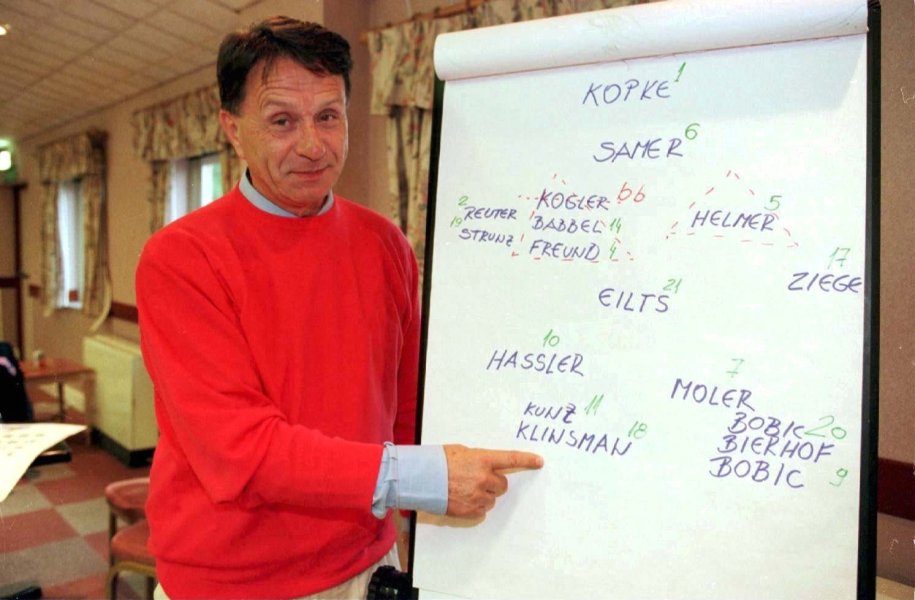 KOPKE 1
SAMER 6
KOGLER bb
2 REUTER BABBEL 14
19 STRUNZ FREUND 4
HELMER 5
ZIEGE 17
EILTS 21
HASSLER 10
MOLER 7
KUNZ 11
KLINSMAN 18
BOBIC 20
BIERHOF
BOBIC 9